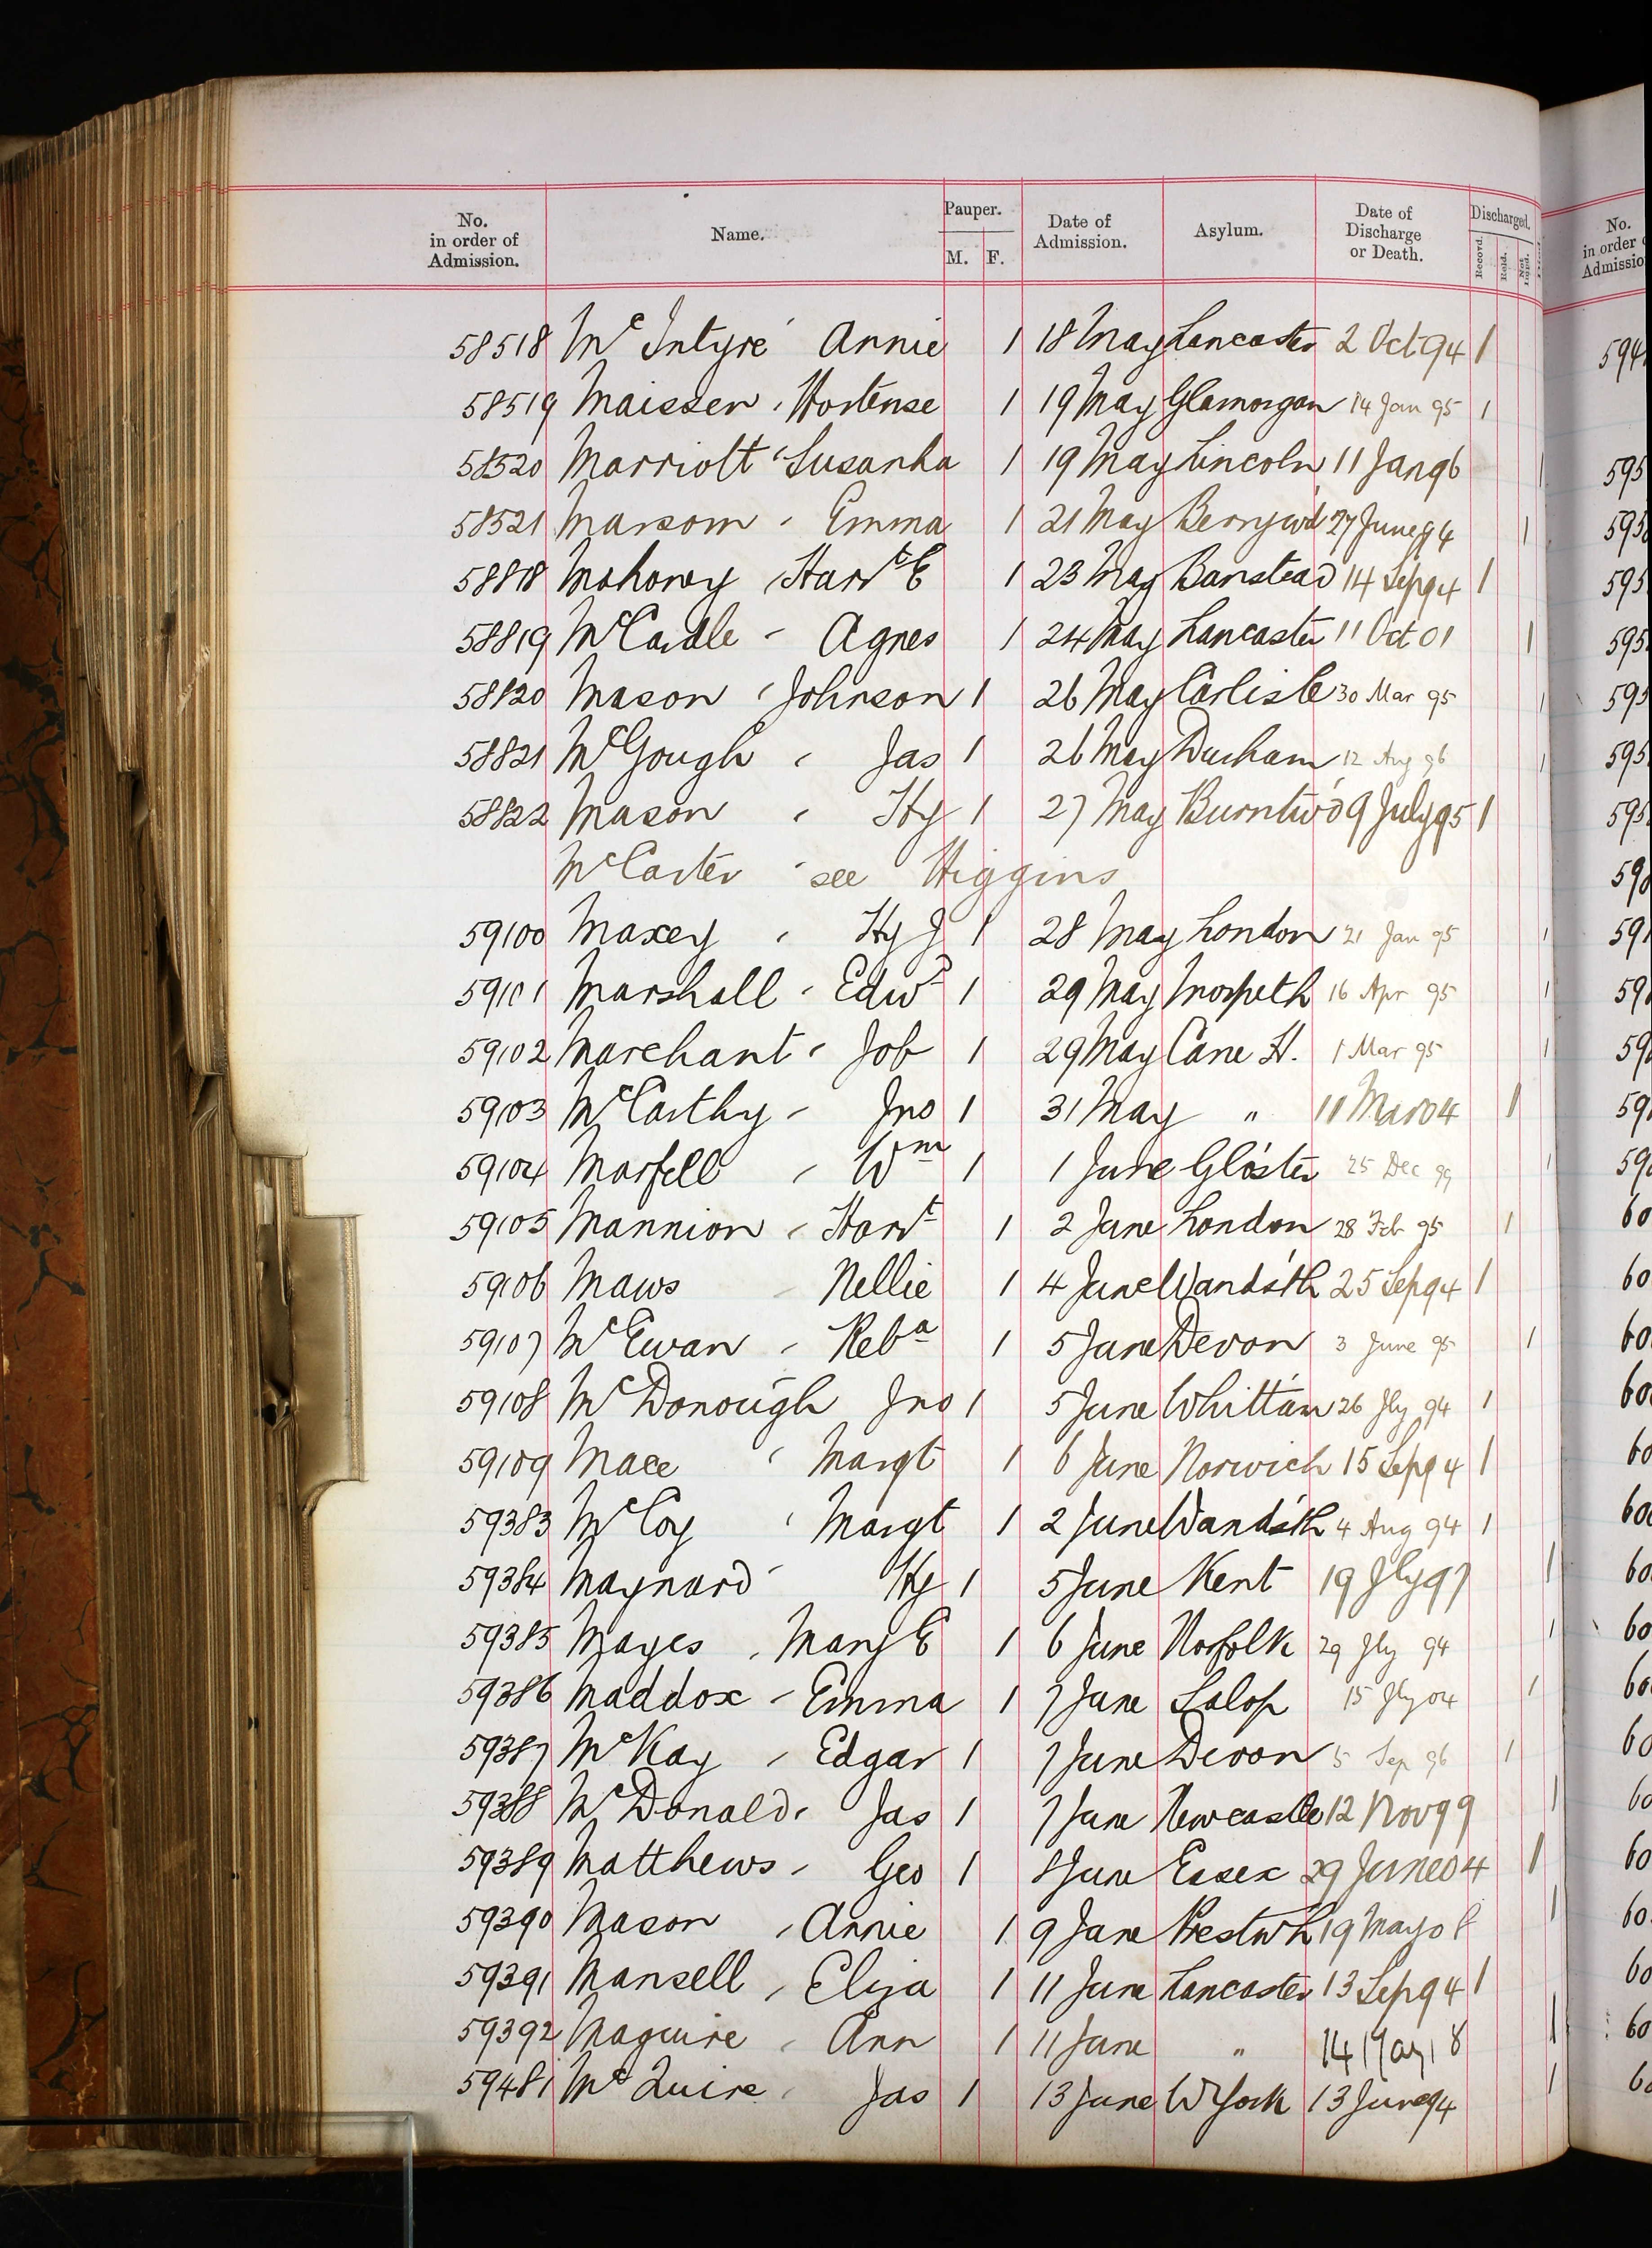 No. in order of Admission. Name. Pauper. M. F. Date of Admission. Asylum. Date of Discharge or Death. Discharged. Recovd. Reld. Not Impd.
58518 McIntyre Annie 1 18 May Lancaster 2 Oct 94 1
58519 Maissen Hortense 1 19 May Glamorgan 14 Jan 95 1
58520 Marriott Susanha 1 19 May Lincoln 11 Jan 96 1
58521 Marsom Emma 1 21 May Berryw'd 27 June 94 1
58818 Mahoney Harrt E 1 23 May Banstead 14 Sep 94 1
58819 McCardle Agnes 1 24 May Lancaster 11 Oct 01 1
58820 Mason Johnson 1 26 May Carlisle 30 Mar 95 1
58821 McGough Jas 1 26 May Durham 12 Aug 96 1
58822 Mason Hy 1 27 May Burntw'd 9 July 95 1
McCarter see Higgins
59100 Maxey Hy J 1 28 May London 21 Jan 95 1
59101 Marshall Edwd 1 29 May Morpeth 16 Apr 95 1
59102 Marchant Job 1 29 May Cane H. 1 Mar 95 1
59103 McCarthy Jno 1 31 May " 11 Mar 04 1
59104 Morfell Wm 1 1 June Glo'ster 25 Dec 99 1
59105 Mannion Harrt 1 2 June London 28 Feb 95 1
59106 Maws Nellie 1 4 June Wands'th 25 Sep 94 1
59107 McEwan Reba 1 5 June Devon 3 June 95 1
59108 McDonough Jno 1 5 June Whitt'am 26 Jly 94 1
59109 Mace Margt 1 6 June Norwich 15 Sep 94 1
59383 McCoy Margt 1 2 June Wands'th 4 Aug 94 1
59384 Maynard Hy 1 5 June Kent 19 Jly 97 1
59385 Mayes Mary E 1 6 June Norfolk 29 Jly 94 1
59386 Maddox Emma 1 7 June Salop 15 Jly 04 1
59387 McKay Edgar 1 7 June Devon 5 Sep 96 1
59388 McDonald Jas 1 7 June Newcastle 12 Nov 99 1
59389 Matthews Geo 1 8 June Essex 29 June 04 1
59390 Mason Annie 1 9 June Prestwh 19 May 08 1
59391 Mansell Eliza 1 11 June Lancaster 13 Sep 94 1
59392 Maguire Ann 1 11 June " 14 May 18 1
59481 McQuire Jas 1 13 June W York 13 June 94 1